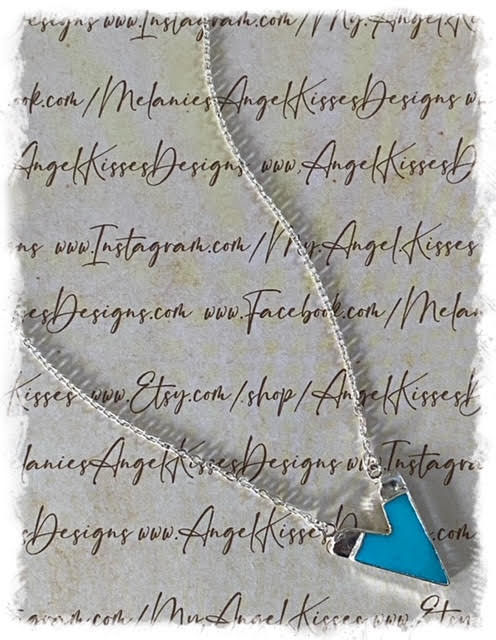 esigns www.Instagram.com/My.Angel.Kisses
ook.com/MelaniesAngelKissesDesigns w
AngelKissesDesigns www.AngelKissesD
ns www.Instagram.com/My.Angel.Kisses
sesDesigns.com www.Facebook.com/Melan
Kisses www.Etsy.com/shop/AngelKissesD
laniesAngelKissesDesigns www.Instagra
sDesigns www.AngelKissesDes .com
agram.com/My.Angel.Kisses www.Etsy